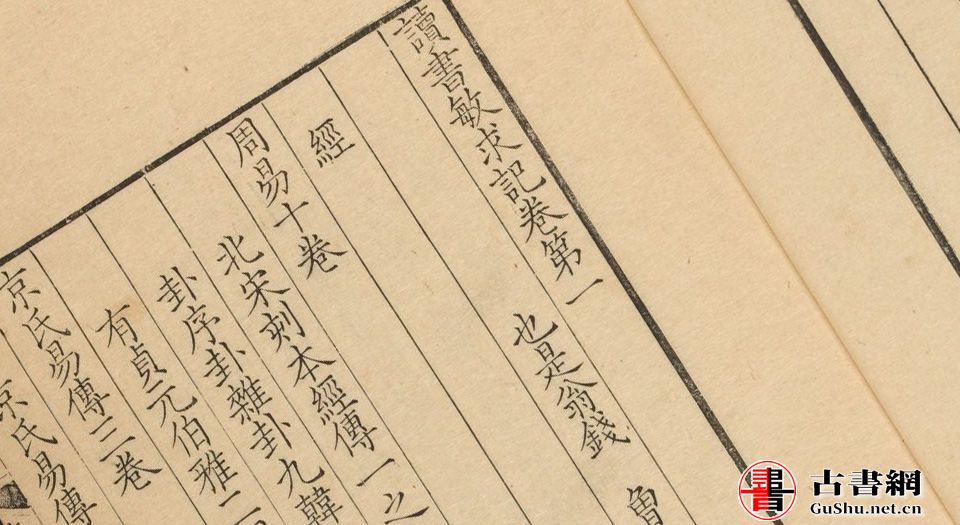 讀書敏求記卷第一
也是翁錢
經
周易十卷
北宋刻本經傳一之
卦序卦雜卦九韓
有貞元伯雅二
京氏易傳三卷
京氏易傳
古書網
GuShu.net.cn